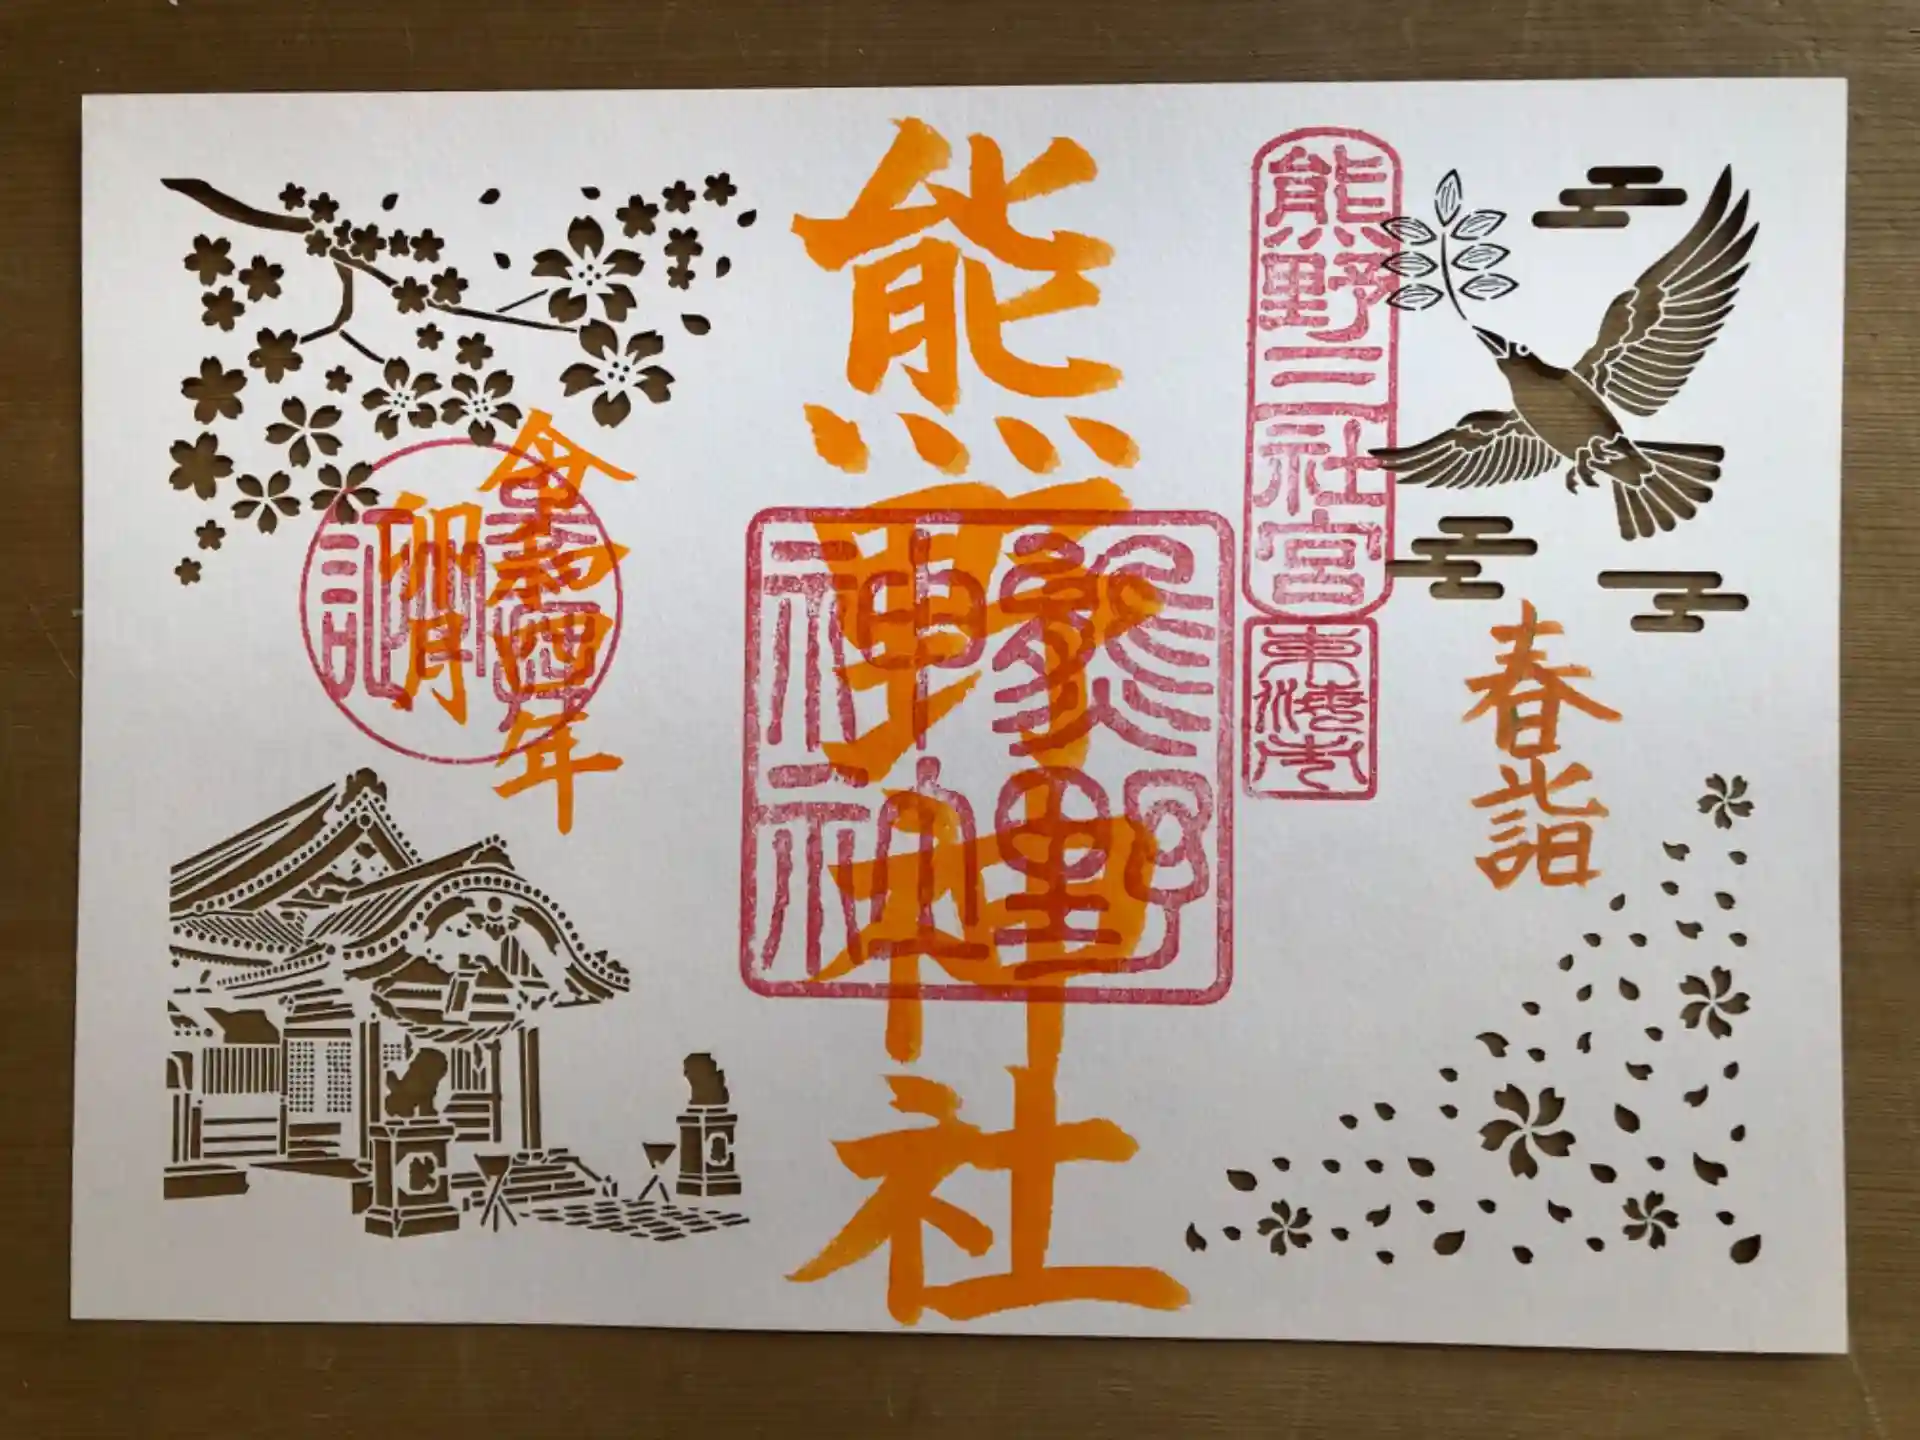 春詣
熊野三社宮
熊野神社
熊野
神社
令和四年
卯月